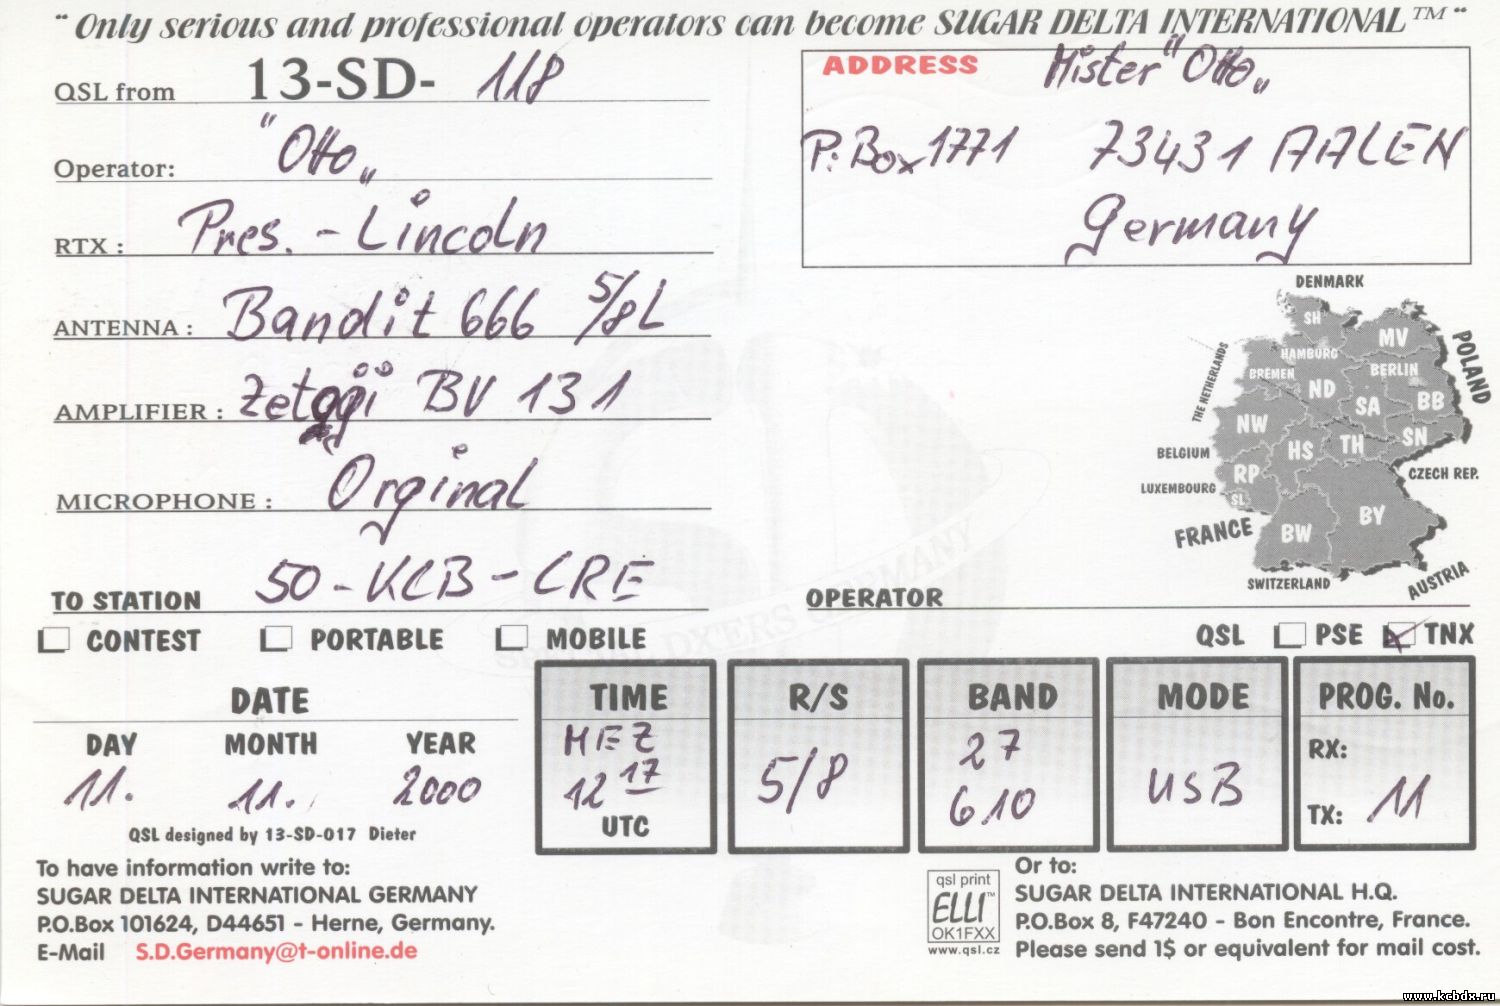 "Only serious and professional operators can become SUGAR DELTA INTERNATIONAL™"
QSL from 13-SD- 118
ADDRESS Mister "Otto"
P.Box 1771 73431 AALEN
Germany
Operator: "Otto"
RTX : Pres. - Lincoln
ANTENNA : Bandit 666 5/8L
AMPLIFIER : Zetaggi BV 131
MICROPHONE : Orginal
TO STATION 50-KCB-CRE
OPERATOR
DENMARK
SH
MV
HAMBURG
BREMEN
BERLIN
POLAND
THE NETHERLANDS
ND
SA
BB
NW
HS
TH
SN
BELGIUM
RP
CZECH REP.
LUXEMBOURG
SL
FRANCE
BW
BY
SWITZERLAND
AUSTRIA
SPECIAL DX'ERS GERMANY
CONTEST PORTABLE MOBILE
QSL PSE TNX
DATE
DAY MONTH YEAR
11. 11. 2000
TIME
MEZ
12 17
UTC
R/S
5/8
BAND
27
610
MODE
USB
PROG. No.
RX:
TX: 11
QSL designed by 13-SD-017 Dieter
To have information write to:
SUGAR DELTA INTERNATIONAL GERMANY
P.O.Box 101624, D44651 - Herne, Germany.
E-Mail S.D.Germany@t-online.de
qsl print
ELLI™
OK1FXX
www.qsl.cz
Or to:
SUGAR DELTA INTERNATIONAL H.Q.
P.O.Box 8, F47240 - Bon Encontre, France.
Please send 1$ or equivalent for mail cost.
www.kcbdx.ru